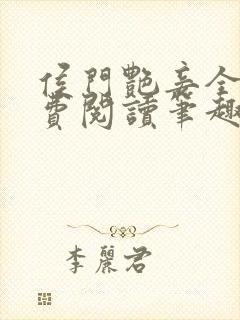 侯門艷妾全
費閱讀筆趣
李麗君